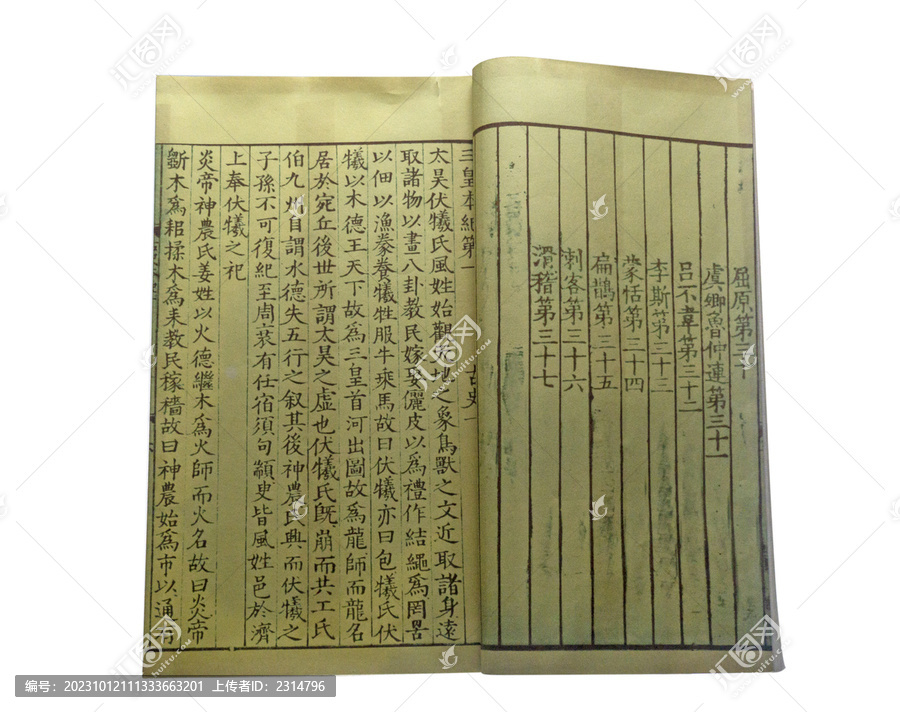 屈原第三十
虞卿魯仲連第三十一
呂不韋第三十二
李斯第三十三
蒙恬第三十四
扁鵲第三十五
刺客第三十六
滑稽第三十七
三皇本紀第一 古史一
太昊伏犧氏風姓始觀天地之象鳥獸之文近取諸身遠
取諸物以畫八卦教民嫁娶儷皮以為禮作結繩為罔罟
以佃以漁豢養犧牲服牛乘馬故曰伏犧亦曰包犧氏伏
犧以木德王天下故為三皇首河出圖故為龍師而龍名
居於宛丘後世所謂太昊之虛也伏犧氏旣崩而共工氏
伯九州自謂水德失五行之叙其後神農氏興而伏犧之
子孫不可復紀至周衰有任宿須句顓臾皆風姓邑於濟
上奉伏犧之祀
炎帝神農氏姜姓以火德繼木為火師而火名故曰炎帝
斵木為耜揉木為耒教民稼穡故曰神農始為市以通有
汇图网
huitu.com
编号：20231012111333663201 上传者ID：2314796